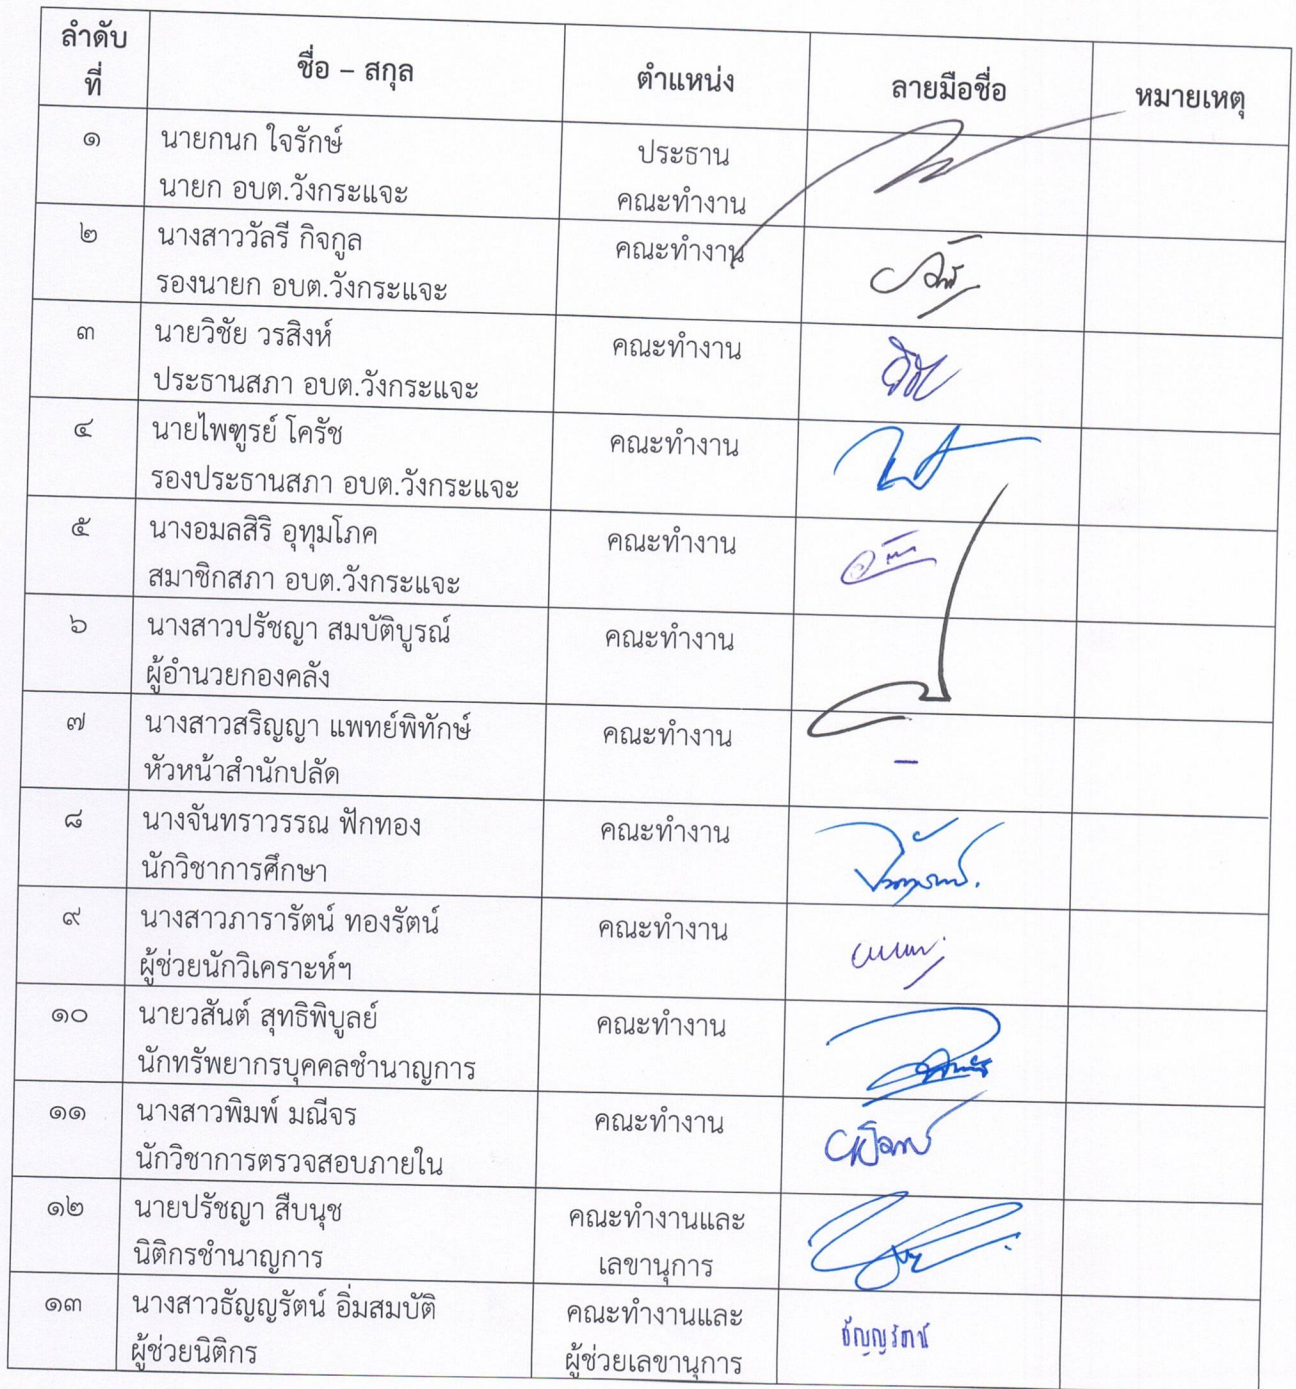 ลำดับ
ที่
ชื่อ – สกุล
ตำแหน่ง
ลายมือชื่อ
หมายเหตุ
๑
นายกนก ใจรักษ์
นายก อบต.วังกระแจะ
ประธาน
คณะทำงาน
๒
นางสาววัลรี กิจกูล
รองนายก อบต.วังกระแจะ
คณะทำงาน
๓
นายวิชัย วรสิงห์
ประธานสภา อบต.วังกระแจะ
คณะทำงาน
๔
นายไพฑูรย์ โครัช
รองประธานสภา อบต.วังกระแจะ
คณะทำงาน
๕
นางอมลสิริ อุทุมโภค
สมาชิกสภา อบต.วังกระแจะ
คณะทำงาน
๖
นางสาวปรัชญา สมบัติบูรณ์
ผู้อำนวยกองคลัง
คณะทำงาน
๗
นางสาวสริญญา แพทย์พิทักษ์
หัวหน้าสำนักปลัด
คณะทำงาน
–
๘
นางจันทราวรรณ ฟักทอง
นักวิชาการศึกษา
คณะทำงาน
๙
นางสาวภารารัตน์ ทองรัตน์
ผู้ช่วยนักวิเคราะห์ฯ
คณะทำงาน
๑๐
นายวสันต์ สุทธิพิบูลย์
นักทรัพยากรบุคคลชำนาญการ
คณะทำงาน
๑๑
นางสาวพิมพ์ มณีจร
นักวิชาการตรวจสอบภายใน
คณะทำงาน
๑๒
นายปรัชญา สืบนุช
นิติกรชำนาญการ
คณะทำงานและ
เลขานุการ
๑๓
นางสาวธัญญรัตน์ อิ่มสมบัติ
ผู้ช่วยนิติกร
คณะทำงานและ
ผู้ช่วยเลขานุการ
ธัญญรัตน์